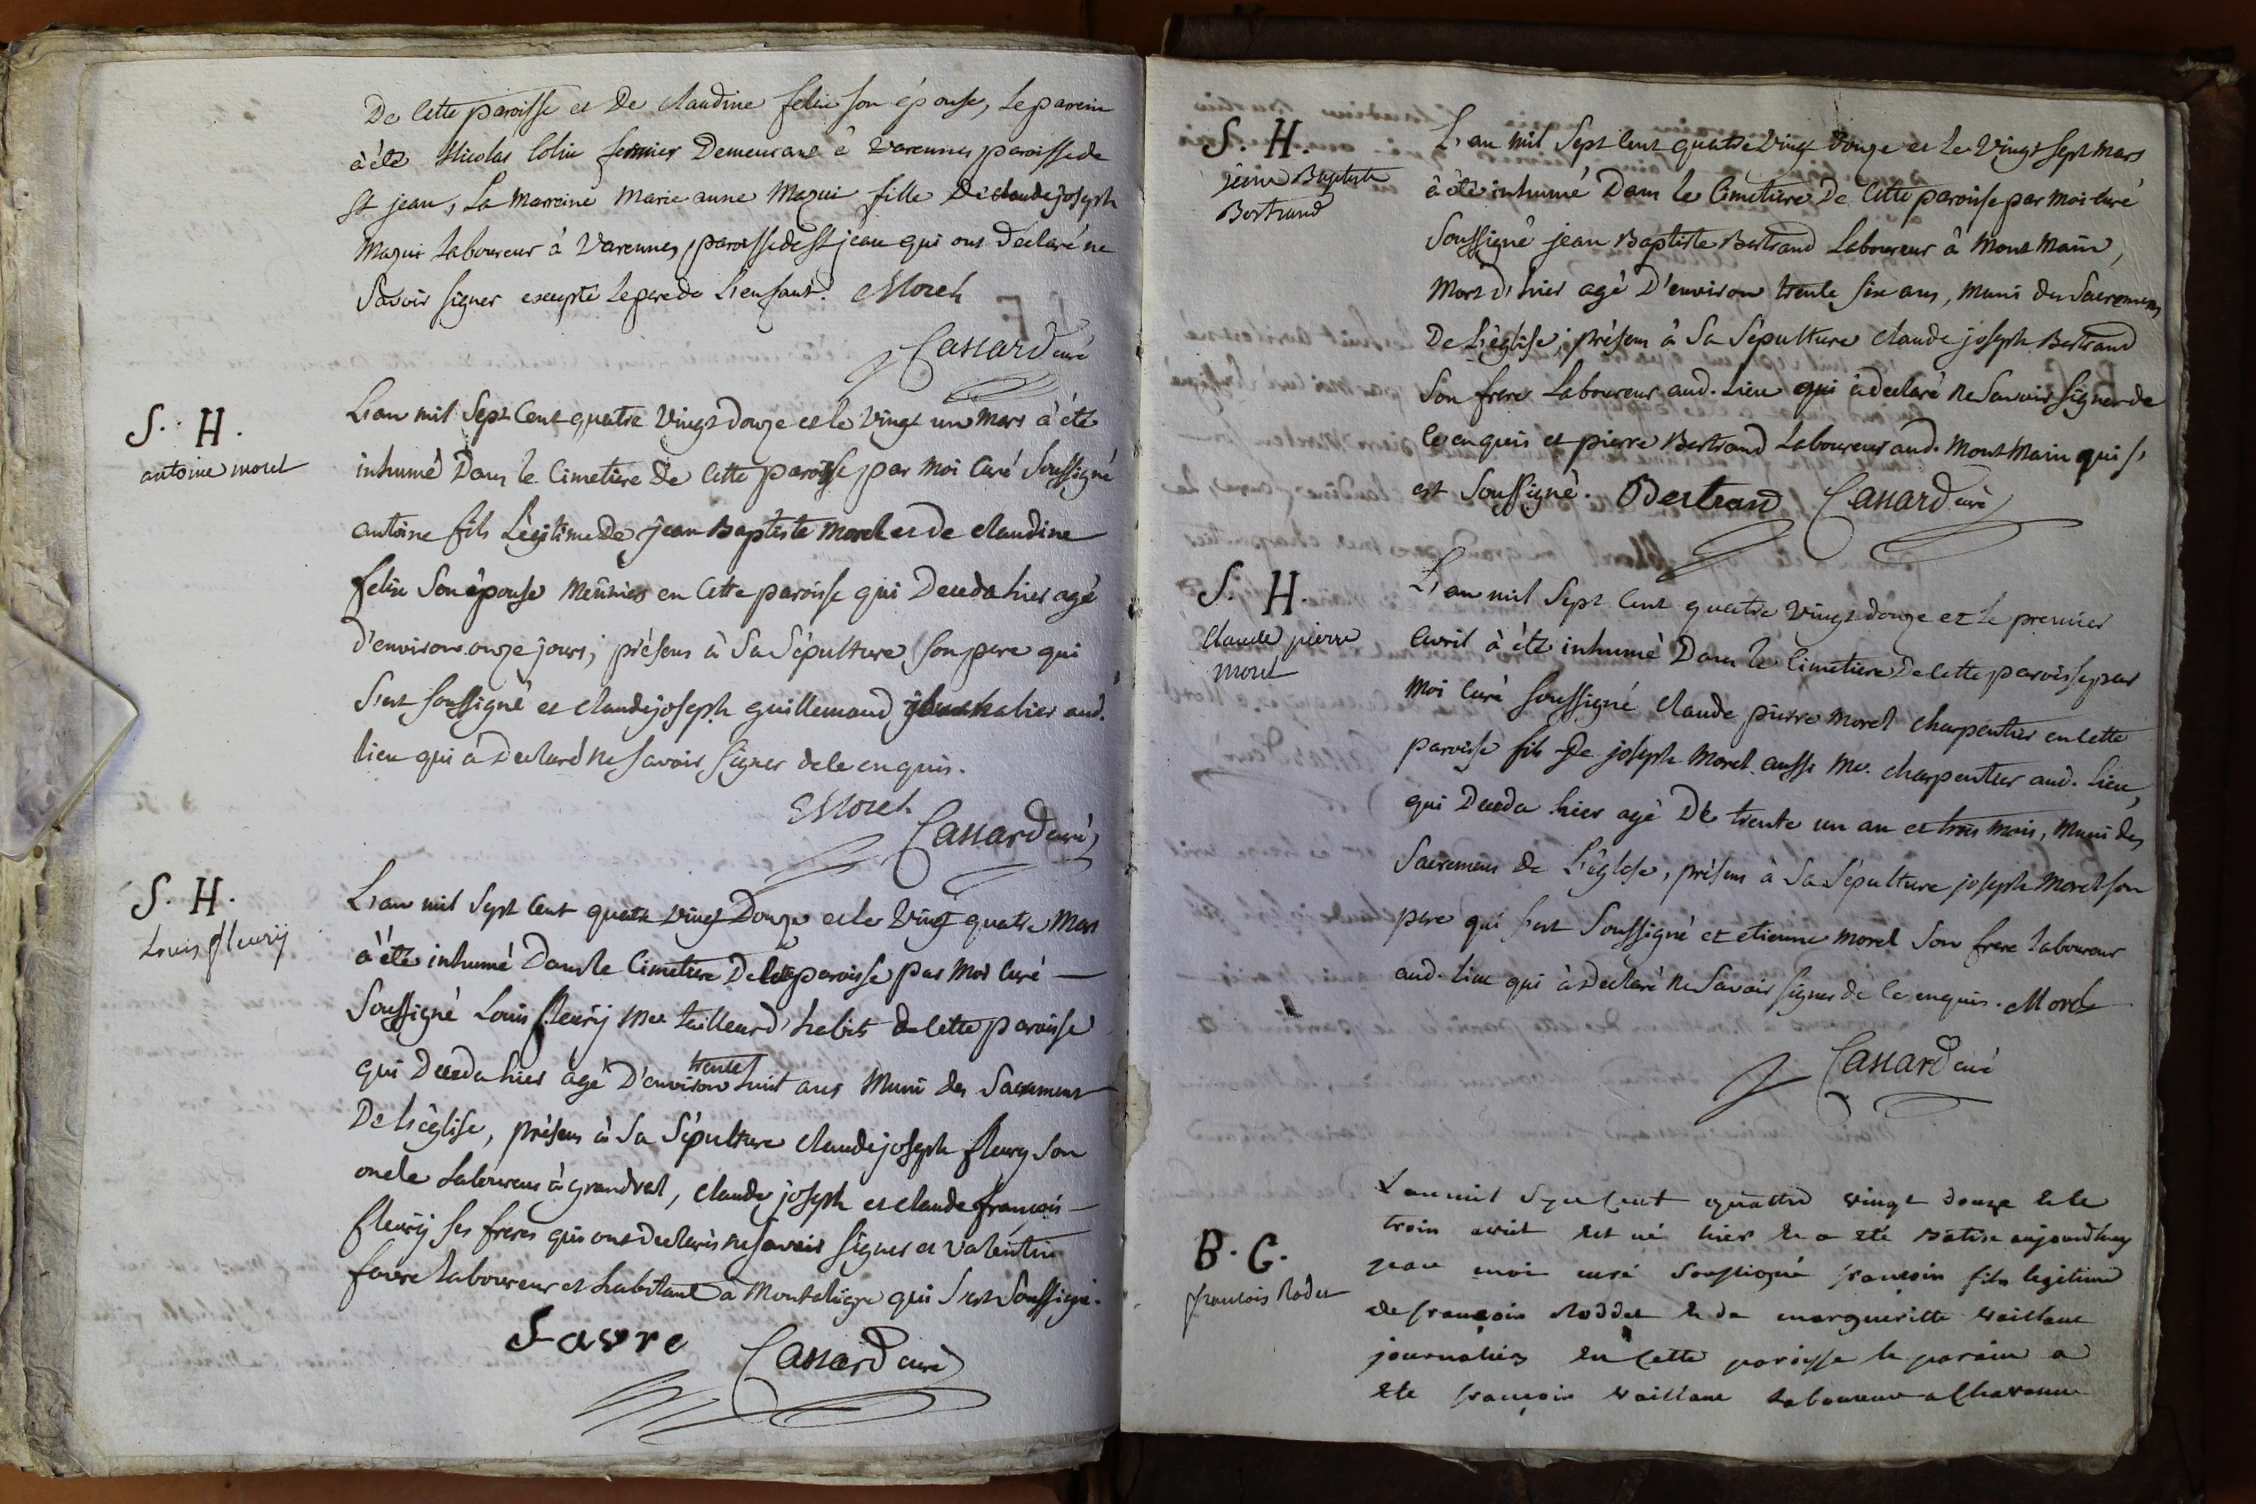 De Cette paroisse et De claudine felix son épouse, Le parein
à été Nicolas Colin fermier Demeurant à varennes paroisse de
St jean, La Marreine Marie anne Maqui fille De claude joseph
Maqui Laboureur à Varennes paroisse de St jean qui ont Declaré ne
Savoir signer excepté le pere de L'enfant. Morel
Cassard curé
S. H.
antoine morel
L'an mil Sept Cent quatre Vingt Douze et le Vingt un Mars à été
inhumé Dans le Cimetiere De Cette paroisse par Moi Curé Soussigné
antoine fils Légitime De jean Baptiste Morel et de Claudine
felix Son épouse Meûnier en Cette paroisse qui Deceda hier agé
d'environ onze jours, présens à Sa Sépulture Son pere qui
S'est soussigné et claude joseph guillemaud aud.
lieu qui à Declaré ne savoir signer de ce enquis.
Morel
Cassard curé
S. H.
Louis fleurÿ
L'an mil Sept Cent quatre vingt Douze et le Vingt quatre Mars
à été inhumé Dans le Cimetiere De Cette paroisse par Moi Curé
Soussigné Louis fleurÿ Me tailleur d'habits de Cette paroisse
qui Deceda hier agé D'environ trente huit ans Muni des Sacrement
De L'église, présens à Sa Sépulture claude joseph fleury Son
oncle Laboureur à grandvel, claude joseph et claude françois
fleurÿ ses freres qui ont declarés ne savoir signer et valentin
favre laboureur et habitant à qui S'est Soussigné.
Favre Cassard curé
S. H.
jean Baptiste
Bertrand
L'an mil Sept Cent quatre Vingt Douze et le Vingt Sept Mars
à été inhumé Dans le Cimetiere De Cette paroisse par Moi Curé
Soussigné jean Baptiste Bertrand Laboureur à Mont Main,
Mort d'hier agé D'environ trente six ans, Muni des Sacremens
De L'église, présens à Sa Sépulture claude joseph Bertrand
Son frere Laboureur aud. Lieu qui à declaré ne Savoir Signer de
ce enquis et pierre Bertrand Laboureur aud. Mont Main qui s'
est Soussigné. Bertrand Cassard curé
S. H.
Claude pierre
morel
L'an mil Sept Cent quatre Vingt Douze et le premier
avril à été inhumé Dans le Cimetiere De Cette paroisse par
Moi Curé Soussigné claude pierre Morel Charpentier en Cette
paroisse fils De joseph Morel aussi Me. charpentier aud. Lieu,
qui Deceda hier agé De trente un an et trois Mois, Muni des
Sacremens de L'église, présens à Sa Sépulture joseph Morel son
pere qui s'est Soussigné et etienne Morel Son frere laboureur
aud. Lieu qui à Declaré ne Savoir signer de ce enquis. Morel
Cassard curé
B. G.
françois Rodet
L'an mil Sept Cent quattre vingt douze et le
trois avril est né hier et a eté Batise aujourdhuy
par moi curé Soussigné françois fils legitime
de françois Roddet et de margueritte vaillant
journalier En Cette paroisse le parain a
ete françois vaillant Laboureur a